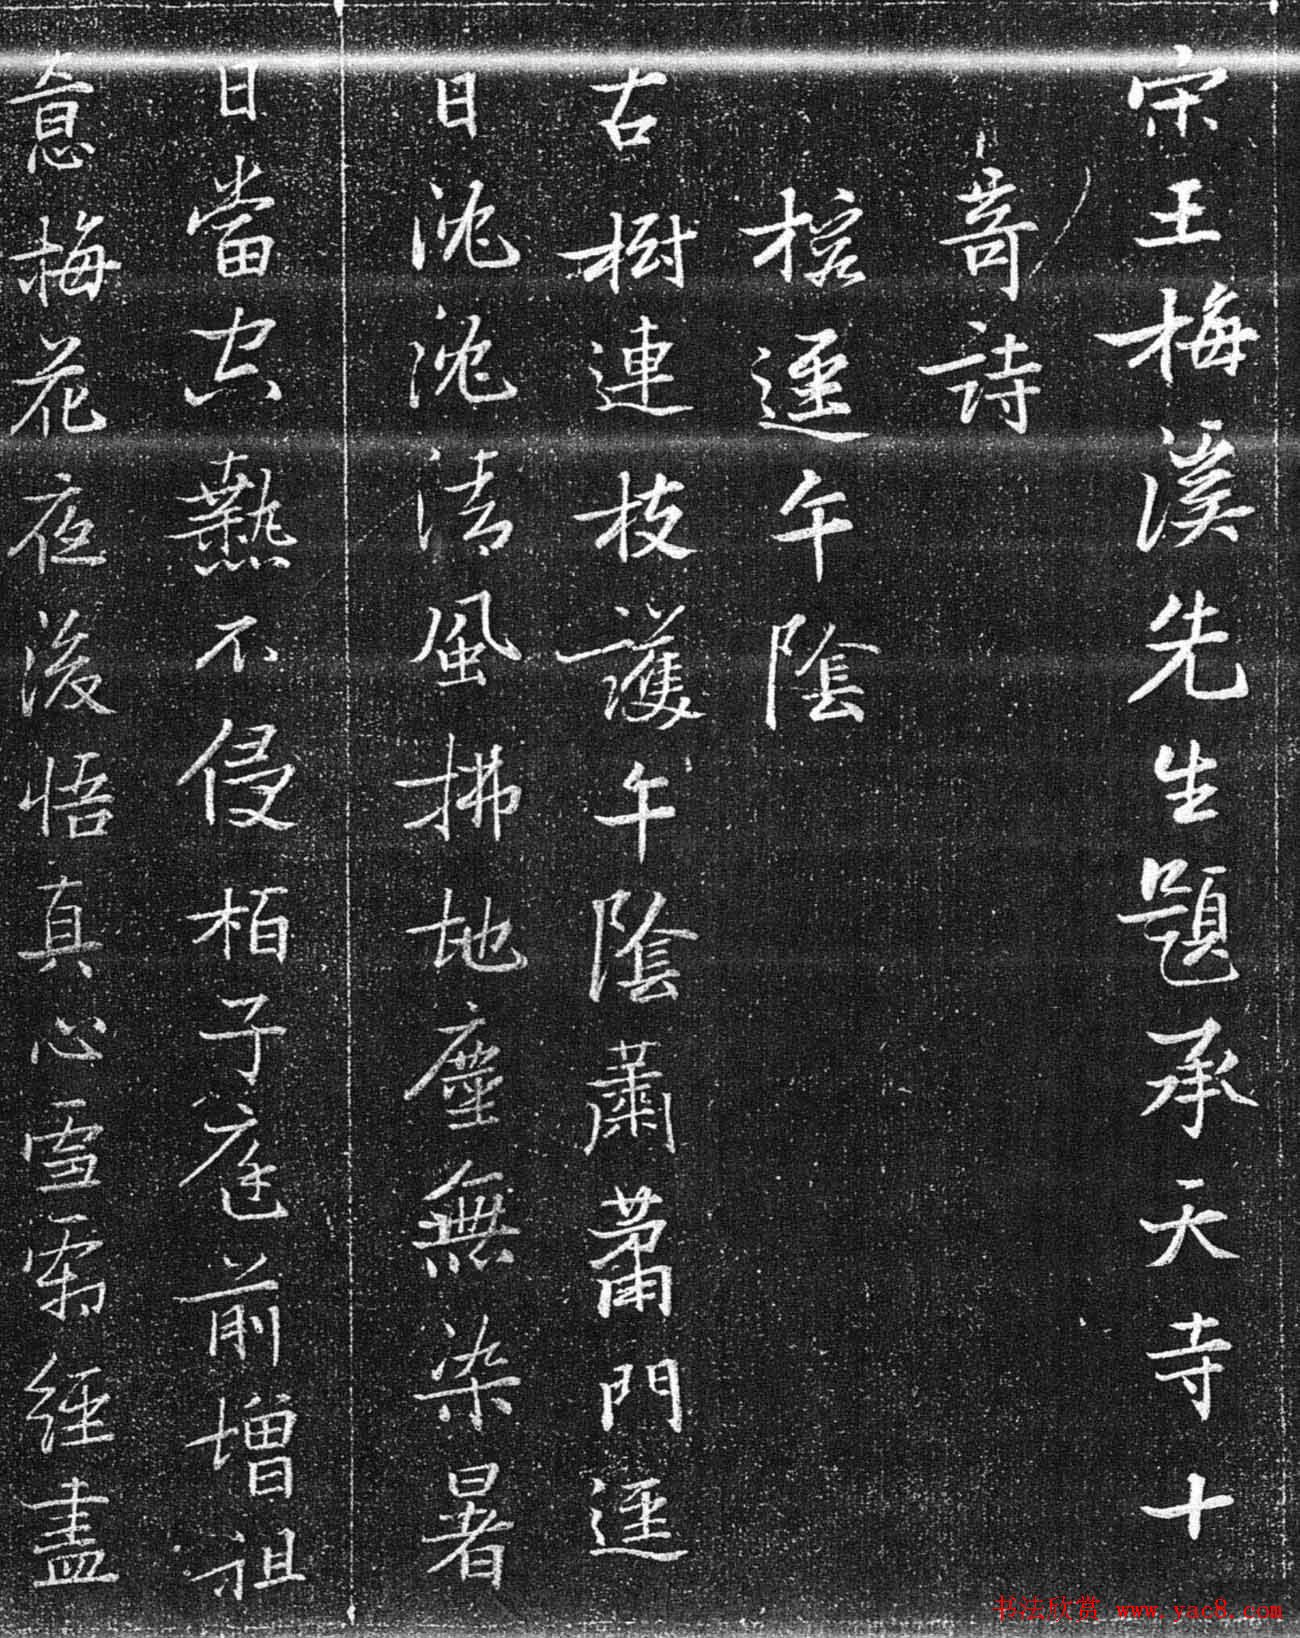 宋王梅溪先生題承天寺十
奇詩
榕逕午陰
古樹連枝護午陰蕭蕭門逕
日沈沈清風拂地塵無染暑
日當空熱不侵栢子庭前增祖
意梅花夜後悟真心雪霜經盡
书法欣赏 www.yac8.com